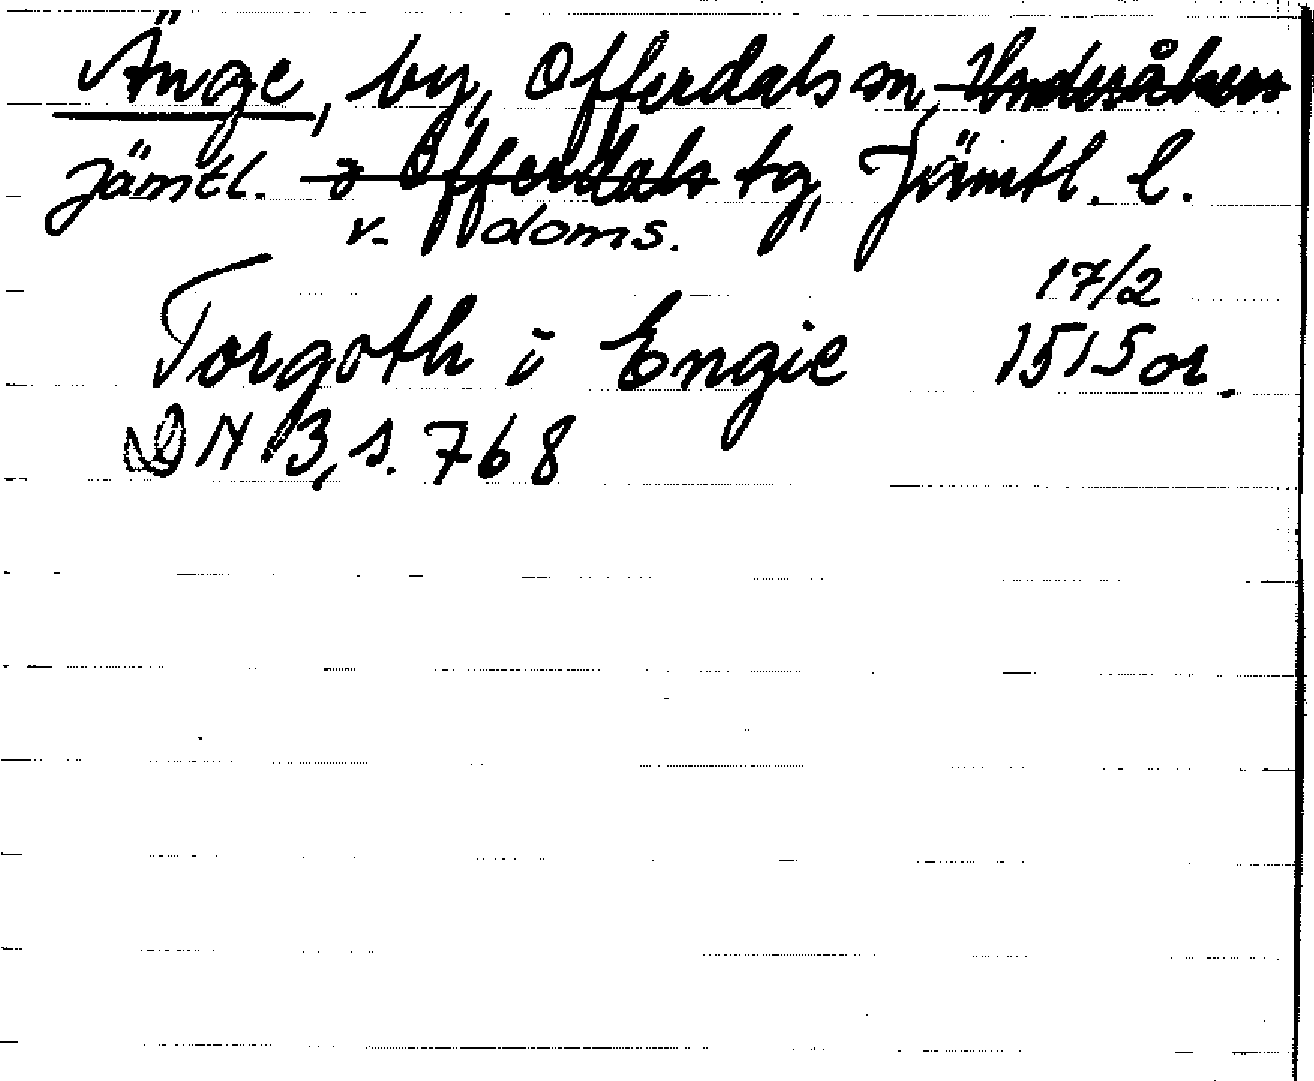 Änge, by, Offerdals sn, Undersåkers
Jämtl. o Offerdals tg, Jämtl. l.
v. doms.
17/2
Torgoth i Engie 1515 or.
DN 3, s. 768